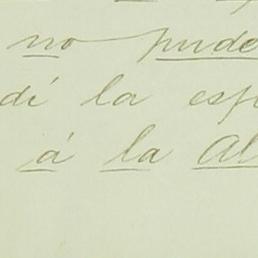 no pude
dí la esp
á la Al